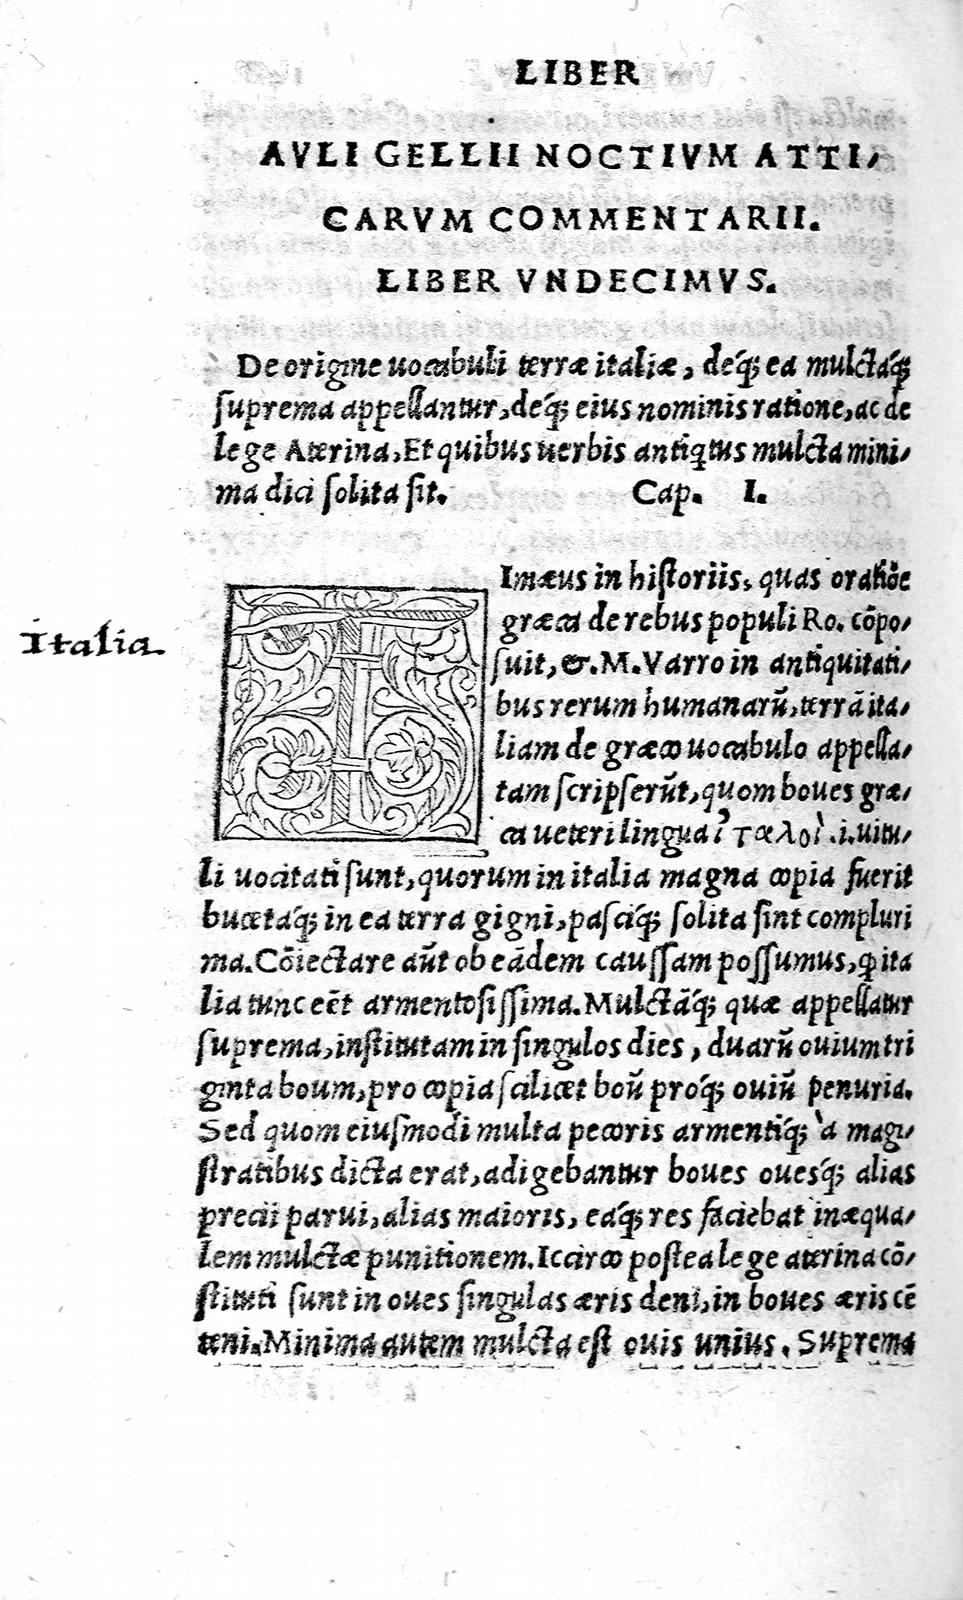 LIBER
AVLI GELLII NOCTIVM ATTI,
CARVM COMMENTARII.
LIBER VNDECIMVS.
De origine uocabuli terræ italiæ, deq́; ea mulctaq́;
suprema appellantur, deq́; eius nominis ratione, ac de
lege Aterina, Et quibus uerbis antiqtus mulcta mini,
ma dici solita sit. Cap. I.
Italia.
TImæus in historiis, quas oratiõe
græca de rebus populi Ro. cõpo,
suit, &. M. Varro in antiquitati,
bus rerum humanarũ, terrã ita,
liam de græco uocabulo appella,
tam scripserũt, quom boues græ,
ca ueteri lingua ἰταλοὶ .i. uitu,
li uocitati sunt, quorum in italia magna copia fuerit
bucetaq́; in ea terra gigni, pasciq́; solita sint compluri
ma. Cõiectare aũt ob eãdem caussam possumus, ꝙ ita
lia tunc eẽt armentosissima. Mulctãq́; quæ appellatur
suprema, institutam in singulos dies, duarũ ouium tri
ginta boum, pro copia scilicet boũ proq́; ouiũ penuria.
Sed quom eiusmodi multa pecoris armentiq́; à magi,
stratibus dicta erat, adigebantur boues ouesq́; alias
precii parui, alias maioris, eaq́; res faciebat inæqua,
lem mulctæ punitionem. Iccirco postea lege aterina cõ,
stituti sunt in oues singulas æris deni, in boues æris cẽ
teni. Minima autem mulcta est ouis unius. Suprema